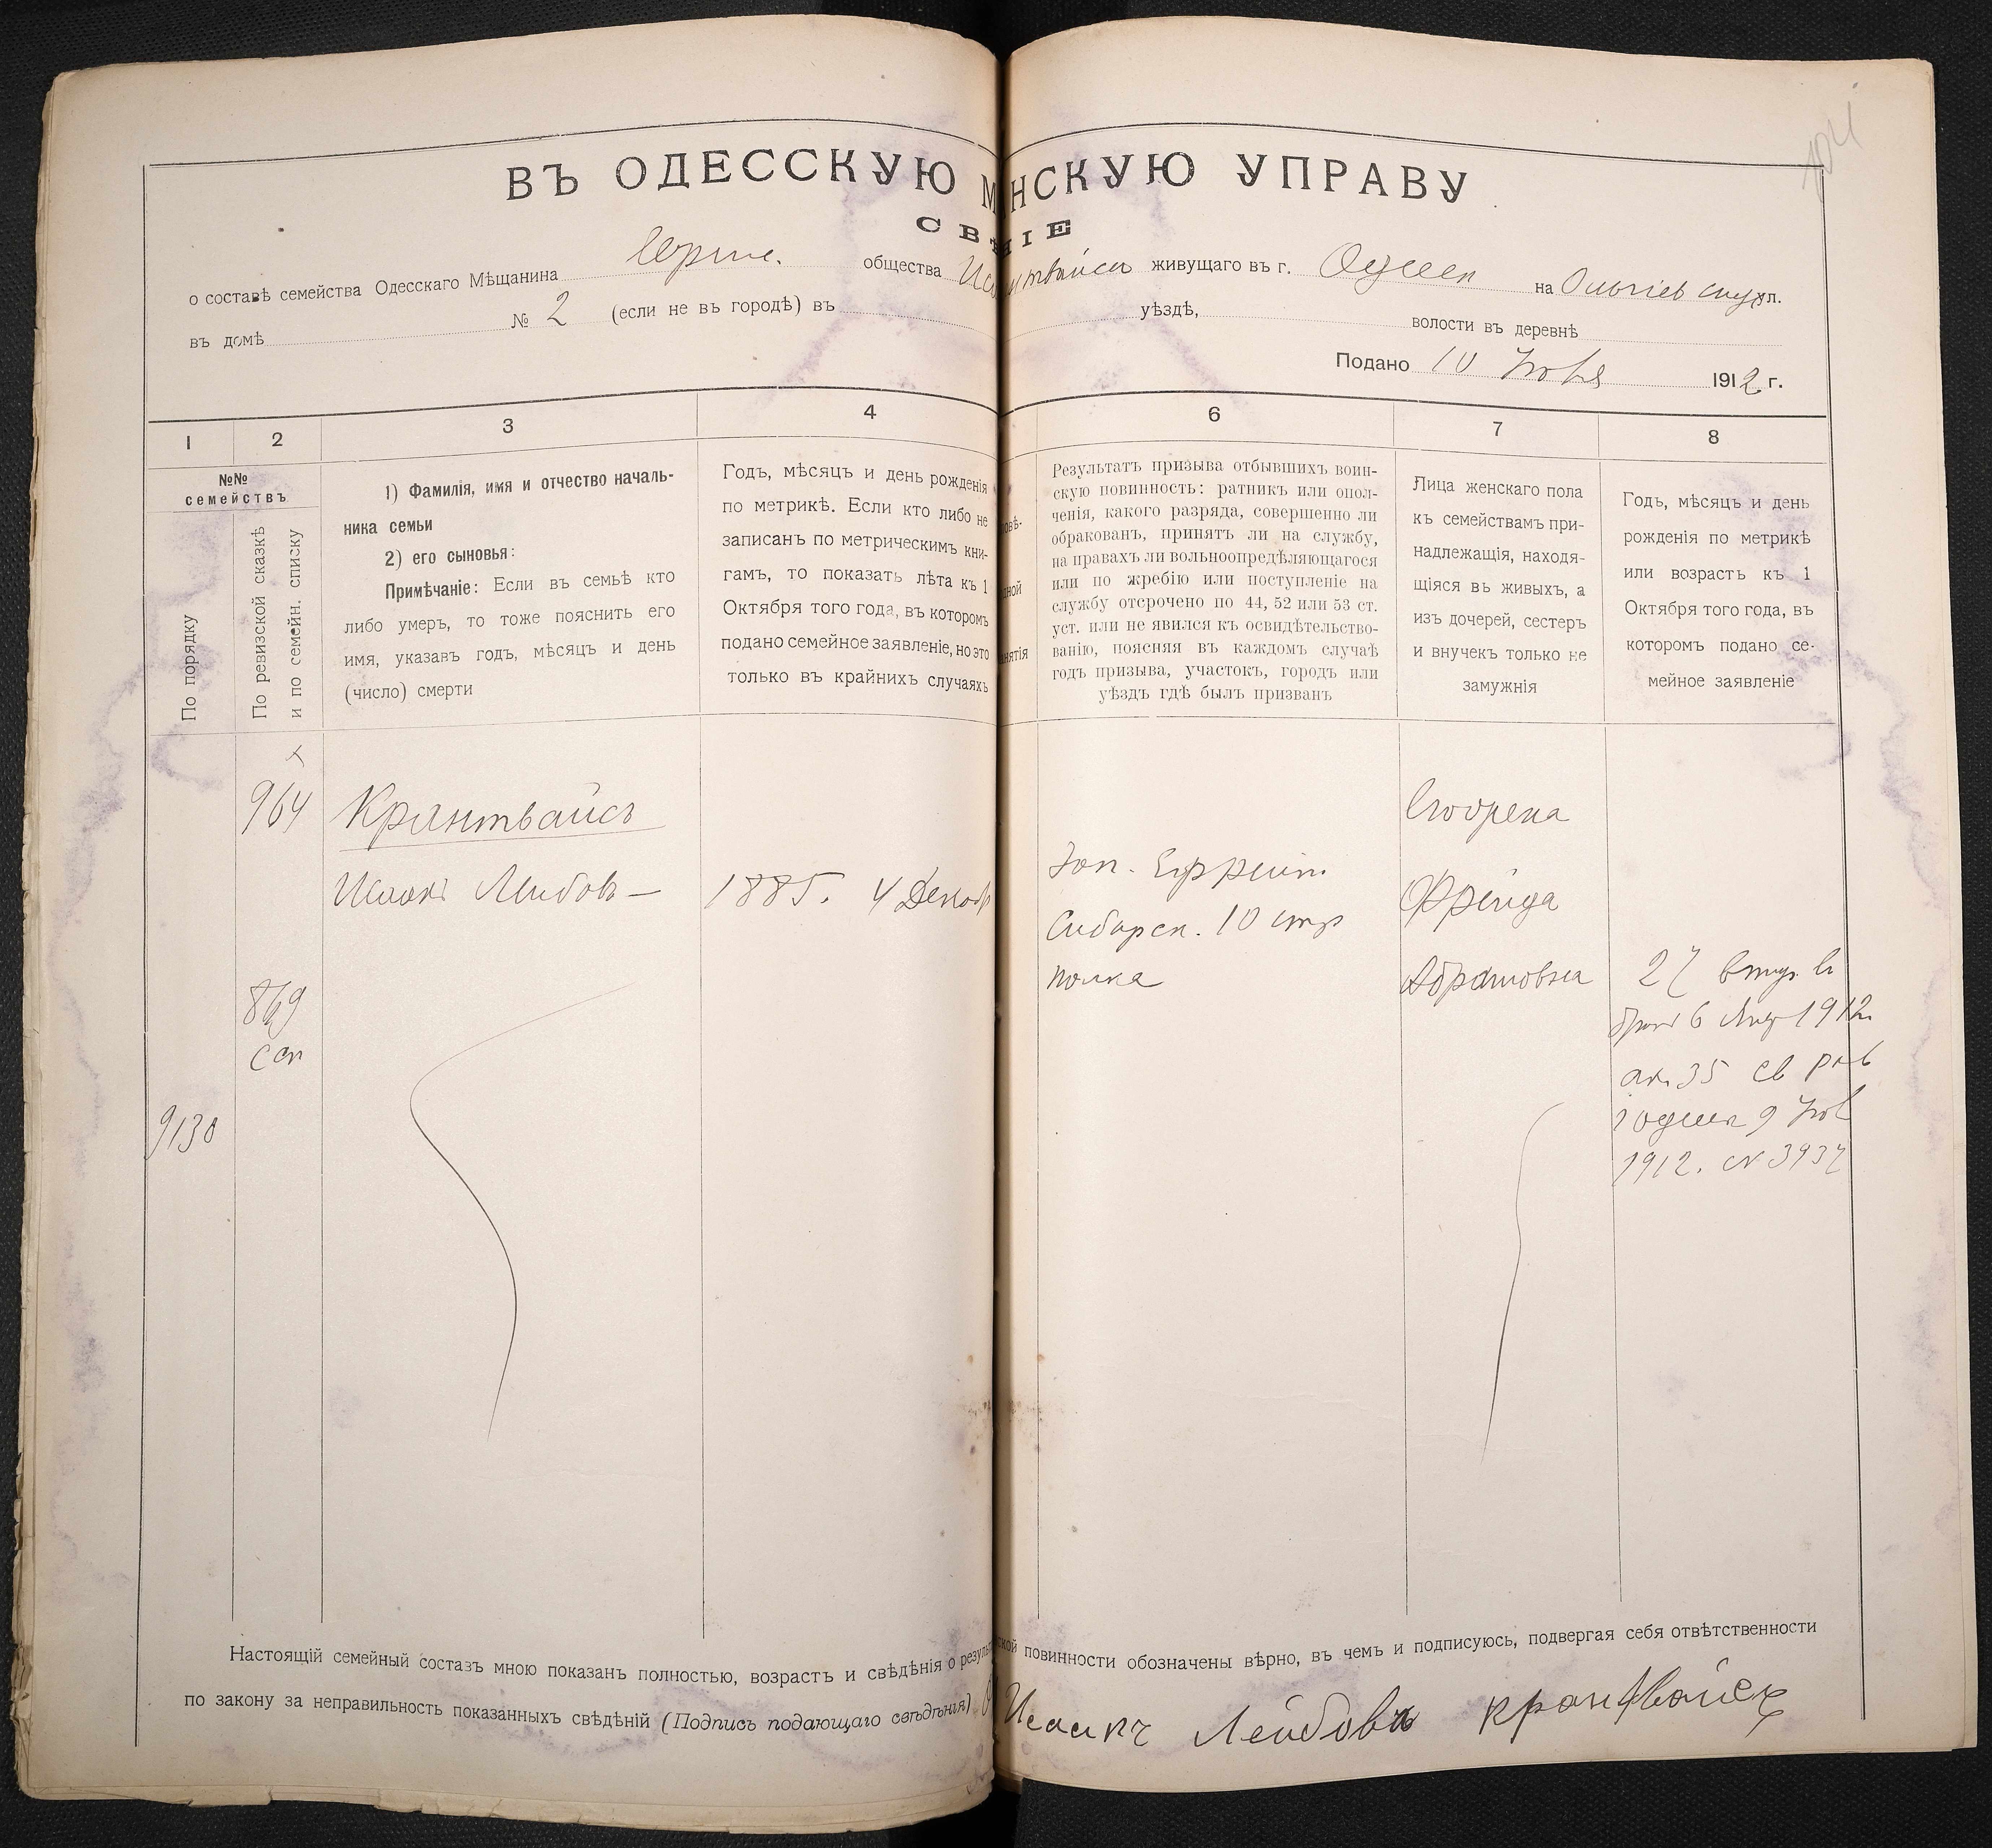 ВЪ ОДЕССКУЮ М НСКУЮ УПРАВУ
СВѢ НІЕ
о составѣ семейства Одесскаго Мѣщанина общества живущаго въ г. Одессѣ на Ольгіев ул.
въ домѣ № 2 (если не въ городѣ) въ уѣздѣ, волости въ деревнѣ
Подано 10 1912 г.
1 2 3 4 6 7 8
№№ семействъ
По порядку
По ревизской сказкѣ
и по семейн. списку
1) Фамилія, имя и отчество началь-
ника семьи
2) его сыновья:
Примѣчаніе: Если въ семьѣ кто
либо умеръ, то тоже пояснить его
имя, указавъ годъ, мѣсяцъ и день
(число) смерти
Годъ, мѣсяцъ и день рожденія
по метрикѣ. Если кто либо не
записанъ по метрическимъ кни-
гамъ, то показать лѣта къ 1
Октября того года, въ которомъ
подано семейное заявленіе, но это
только въ крайнихъ случаяхъ
Результатъ призыва отбывшихъ воин-
скую повинность: ратникъ или опол-
ченія, какого разряда, совершенно ли
обракованъ, принятъ ли на службу,
на правахъ ли вольноопредѣляющагося
или по жребію или поступленіе на
службу отсрочено по 44, 52 или 53 ст.
уст. или не явился къ освидѣтельство-
ванію, поясняя въ каждомъ случаѣ
годъ призыва, участокъ, городъ или
уѣздъ гдѣ былъ призванъ
Лица женскаго пола
къ семействамъ при-
надлежащія, находя-
щіяся въ живыхъ, а
изъ дочерей, сестеръ
и внучекъ только не
замужнія
Годъ, мѣсяцъ и день
рожденія по метрикѣ
или возрастъ къ 1
Октября того года, въ
которомъ подано се-
мейное заявленіе
964
Крантвайсъ
Исаакъ Лейбовъ —
1885. 4 Декабр
Зап. Ефрейт.
Сибирск. 10 стр
полка
Фрейда
Абрамовна
27 вступ. въ
бракъ 6 Янв 1912
ак. 35 св рав
Одессы 9
1912. № 3937
869
сп
9130
Настоящій семейный составъ мною показанъ полностью, возрастъ и свѣдѣнія о резуль ской повинности обозначены вѣрно, въ чемъ и подписуюсь, подвергая себя отвѣтственности
по закону за неправильность показанныхъ свѣдѣній (Подпись подающаго свѣдѣнія) Исаакъ Лейбовъ крантвайсъ